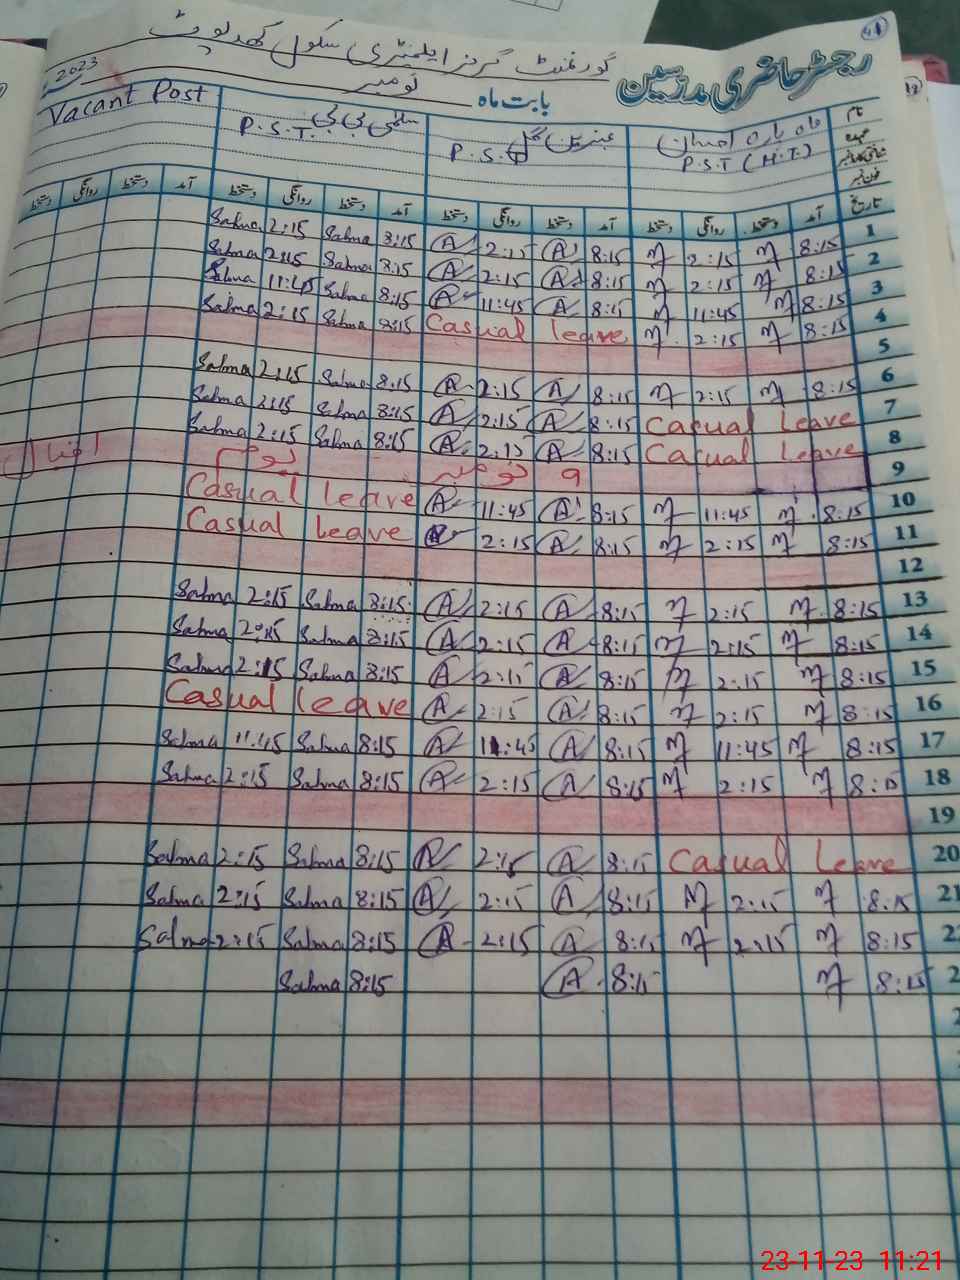 41
رجسٹر حاضری مدرسین
گورنمنٹ گرلز ایلیمنٹری سکول
بابت ماہ نومبر 2023
نام
عہدہ
فون نمبر
ماہ پارہ
P.S.T (H.T.)
عنبرین گل
P.S.T
سلمی بی بی
P.S.T.
Vacant Post
تاریخ آمد دستخط روانگی دستخط آمد دستخط روانگی دستخط آمد دستخط روانگی دستخط آمد دستخط روانگی دستخط
1 8:15 M 2:15 M 8:15 A 2:15 A 8:15 Salma 2:15 Salma
2 8:15 M 2:15 M 8:15 A 2:15 A 8:15 Salma 2:15 Salma
3 8:15 M 11:45 M 8:15 A 11:45 A 8:15 Salma 11:45 Salma
4 8:15 M 2:15 M Casual leave 8:15 Salma 2:15 Salma
5
6 8:15 M 2:15 M 8:15 A 2:15 A 8:15 Salma 2:15 Salma
7 Casual Leave 8:15 A 2:15 A 8:15 Salma 2:15 Salma
8 Casual Leave 8:15 A 2:15 A 8:15 Salma 2:15 Salma
9 ۹ نومبر یوم اقبال
10 8:15 M 11:45 M 8:15 A 11:45 A Casual leave
11 8:15 M 2:15 M 8:15 A 2:15 A Casual leave
12
13 8:15 M 2:15 M 8:15 A 2:15 A 8:15 Salma 2:15 Salma
14 8:15 M 2:15 M 8:15 A 2:15 A 8:15 Salma 2:15 Salma
15 8:15 M 2:15 M 8:15 A 2:15 A 8:15 Salma 2:15 Salma
16 8:15 M 2:15 M 8:15 A 2:15 A Casual leave
17 8:15 M 11:45 M 8:15 A 11:45 A 8:15 Salma 11:45 Salma
18 8:15 M 2:15 M 8:15 A 2:15 A 8:15 Salma 2:15 Salma
19
20 Casual Leave 8:15 A 2:15 A 8:15 Salma 2:15 Salma
21 8:15 M 2:15 M 8:15 A 2:15 A 8:15 Salma 2:15 Salma
2 8:15 M 2:15 M 8:15 A 2:15 A 8:15 Salma 2:15 Salma
2 8:15 M 8:15 A 8:15 Salma
23-11-23 11:21